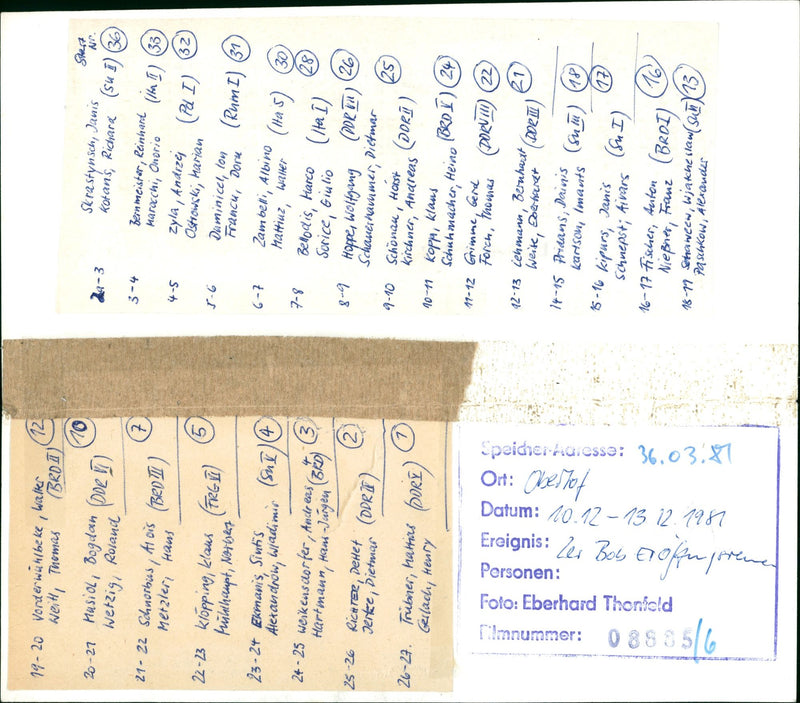 Start
Nr.
24-3 Skrastynsch, Janis
Kotans, Richard (SU II) 36
3-4 Bernmeister, Reinhard
Maracchi, Onorio (Ita II) 33
4-5 Zyla, Andrzej
Ostrowski, Marian (Pd I) 32
5-6 Duminicel, Ion
Francu, Doru (Rum I) 31
6-7 Zambelli, Albino
Mattiuz, Walter (Ita 5) 30
7-8 Bellodis, Marco
Sorice, Giulio (Ita I) 28
8-9 Hoppe, Wolfgang (DDR III) 26
Schauerhammer, Dietmar
9-10 Schönau, Horst
Kirchner, Andreas (DDR II) 25
10-11 Kopp, Klaus
Schuhmacher, Heino (BRD V) 24
11-12 Grimme, Gerd
Forch, Thomas (DDR VIII) 22
12-13 Lehmann, Bernhardt
Weike, Eberhardt (DDR III) 21
14-15 Pridans, Dainis
Karlson, Imants (SU III) 18
15-16 Kipurs, Janis
Schnepst, Aivars (SU I) 17
16-17 Fischer, Anton
Nießner, Franz (BRD I) 16
18-19 Wjatscheslaw (SU II) 13
Paschkow, Alexander
19-20 Vorderwühlbeke, Walter
Weitl, Thomas (BRD II) 12
20-21 Musiol, Bogdan
Wetzig, Roland (DDR VI) 10
21-22 Schnorbus, Alois
Metzler, Hans (BRD III) 7
22-23 Klöpping, Klaus
Mühlhaupt, Norbert (FRG VI) 5
23-24 Ekmanis, Sintis
Alexandrow, Wladimir (SU V) 4
24-25 Weikensdorfer, Andreas
Hartmann, Hans-Jürgen (BRD 4) 3
25-26 Richter, Detlef
Jerke, Dietmar (DDR IV) 2
26-27 Trübner, Mathias
Gerlach, Henry (DDR V) 1
Speicher-Adresse: 36.03.81
Ort: Oberhof
Datum: 10.12-13.12.1981
Ereignis: 2er Bob Eröffnungsrennen
Personen:
Foto: Eberhard Thonfeld
Filmnummer: 08885/6